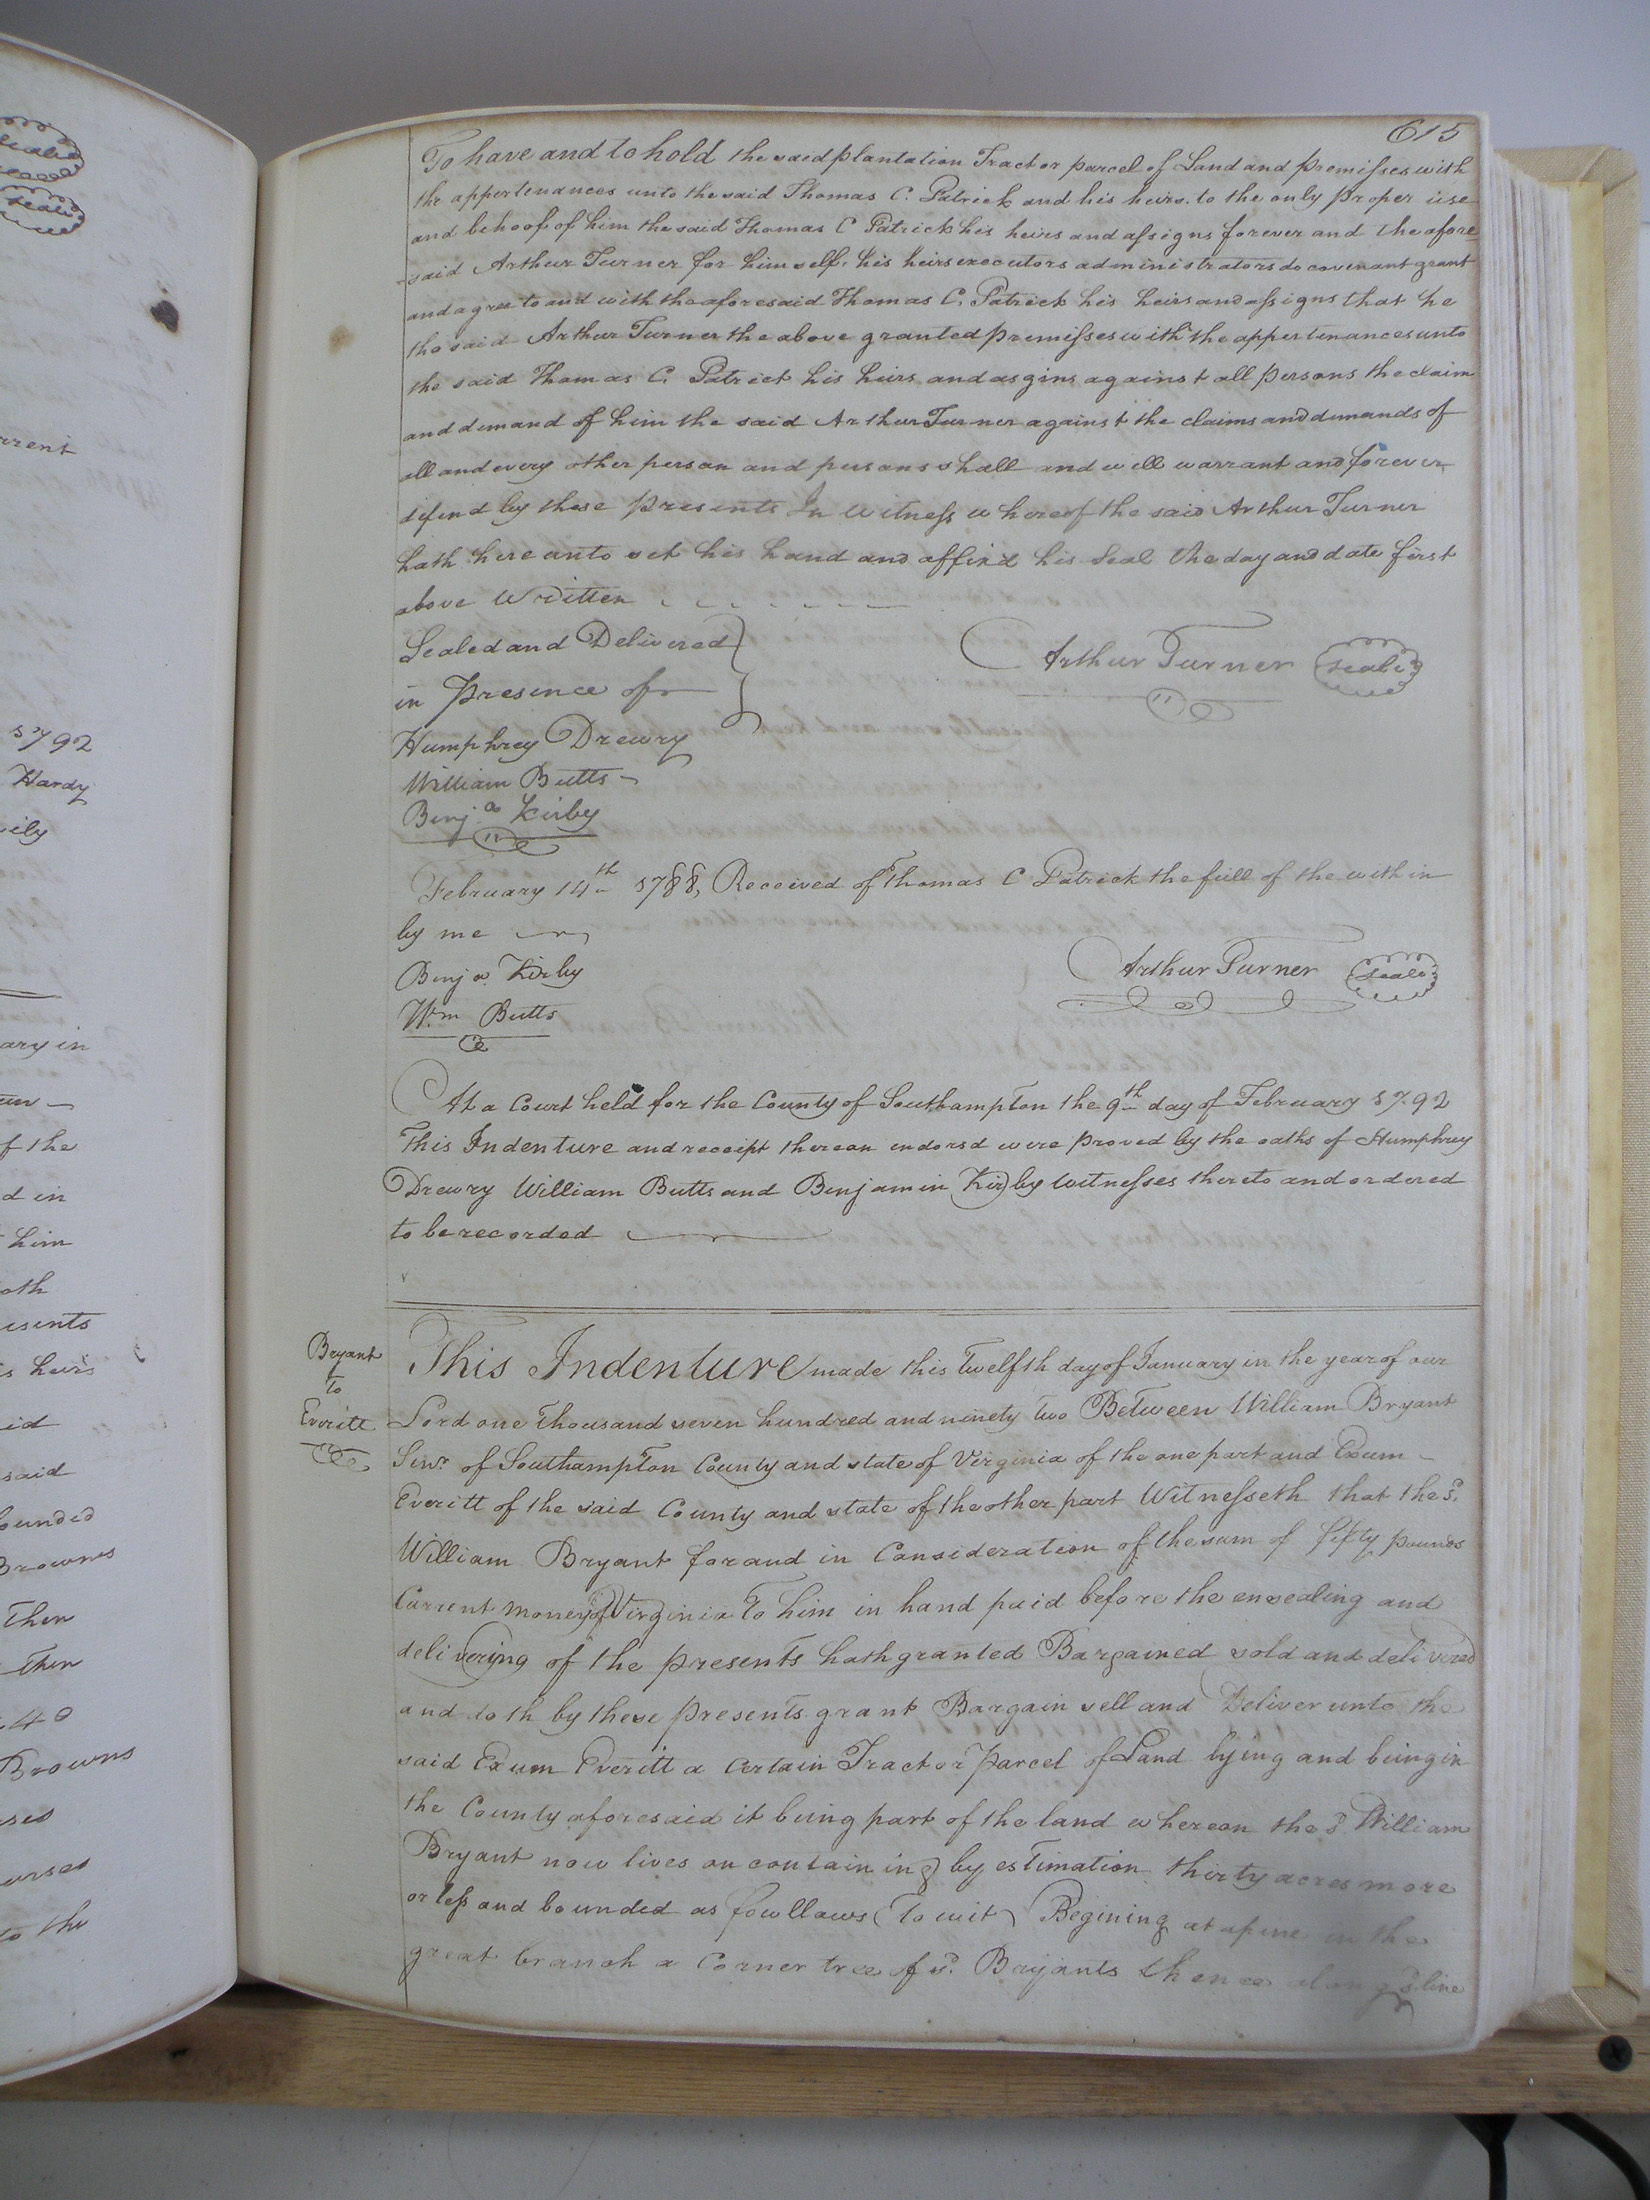 615
To have and to hold the said plantation Tract or parcel of Land and premisses with
the appertenances unto the said Thomas C. Patrick and his heirs. to the only proper use
and behoof of him the said Thomas C Patrick his heirs and assigns forever and the afore
said Arthur Turner for himself, his heirs executors administrators do covenant grant
and agree to and with the aforesaid Thomas C. Patrick his heirs and assigns that he
the said Arthur Turner the above granted premisses with the appertenances unto
the said Thomas C. Patrick his heirs and asgins against all persons the claim
and demand of him the said Arthur Turner against the claims and demands of
all and every other person and persons shall and will warrant and forever
defend by these presents In witness whereof the said Arthur Turner
hath here unto set his hand and affix'd his Seal the day and date first
above Written
Sealed and Delivered
in Presence of
Arthur Turner Seal
Humphrey Drewry
William Butts
Benja Kirby
February 14th 1788, Received of Thomas C Patrick the full of the within
by me
Benja Kirby
Arthur Turner Seal
Wm Butts
At a Court held for the County of Southampton the 9th day of February 1792
This Indenture and receipt thereon endorsd were proved by the oaths of Humphrey
Drewry William Butts and Benjamin Kirby Witnesses thereto and ordered
to be recorded
Bryant
to
Everitt
This Indenture made this Twelfth day of January in the year of our
Lord one Thousand seven hundred and ninety two Between William Bryant
Sinr. of Southampton County and state of Virginia of the one part and Exum
Everitt of the said County and state of the other part Witnesseth that the sd.
William Bryant for and in Consideration of the sum of fifty pounds
Current money of Virginia To him in hand paid before the ensealing and
delivering of the presents hath granted Bargained sold and delivered
and doth by these presents grant Bargain sell and Deliver unto the
said Exum Everitt a Certain Tract or Parcel of Land lying and being in
the County aforesaid it being part of the land whereon the sd William
Bryant now lives on containing by estimation thirty acres more
or less and bounded as fowllaws (To wit) Begining at a pine in the
great branch a Corner tree of sd. Bryants thence along sd. line
rrent
1792
Hardy
ily
ary in
f the
d in
him
oth
esents
s heirs
id
said
ounded
Browns
Then
Then
40
Browns
ses
urses
to the